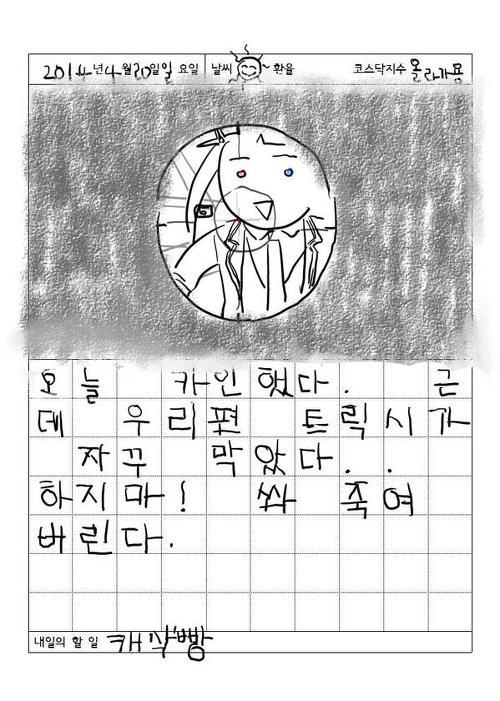 2014년 4월 20일일 요일 날씨 환율 코스닥지수 올라가용
오늘 카인했다. 근
데 우리편 트릭시가
자꾸 막았다..
하지마! 쏴 죽여
버린다.
내일의 할 일 캐삭빵